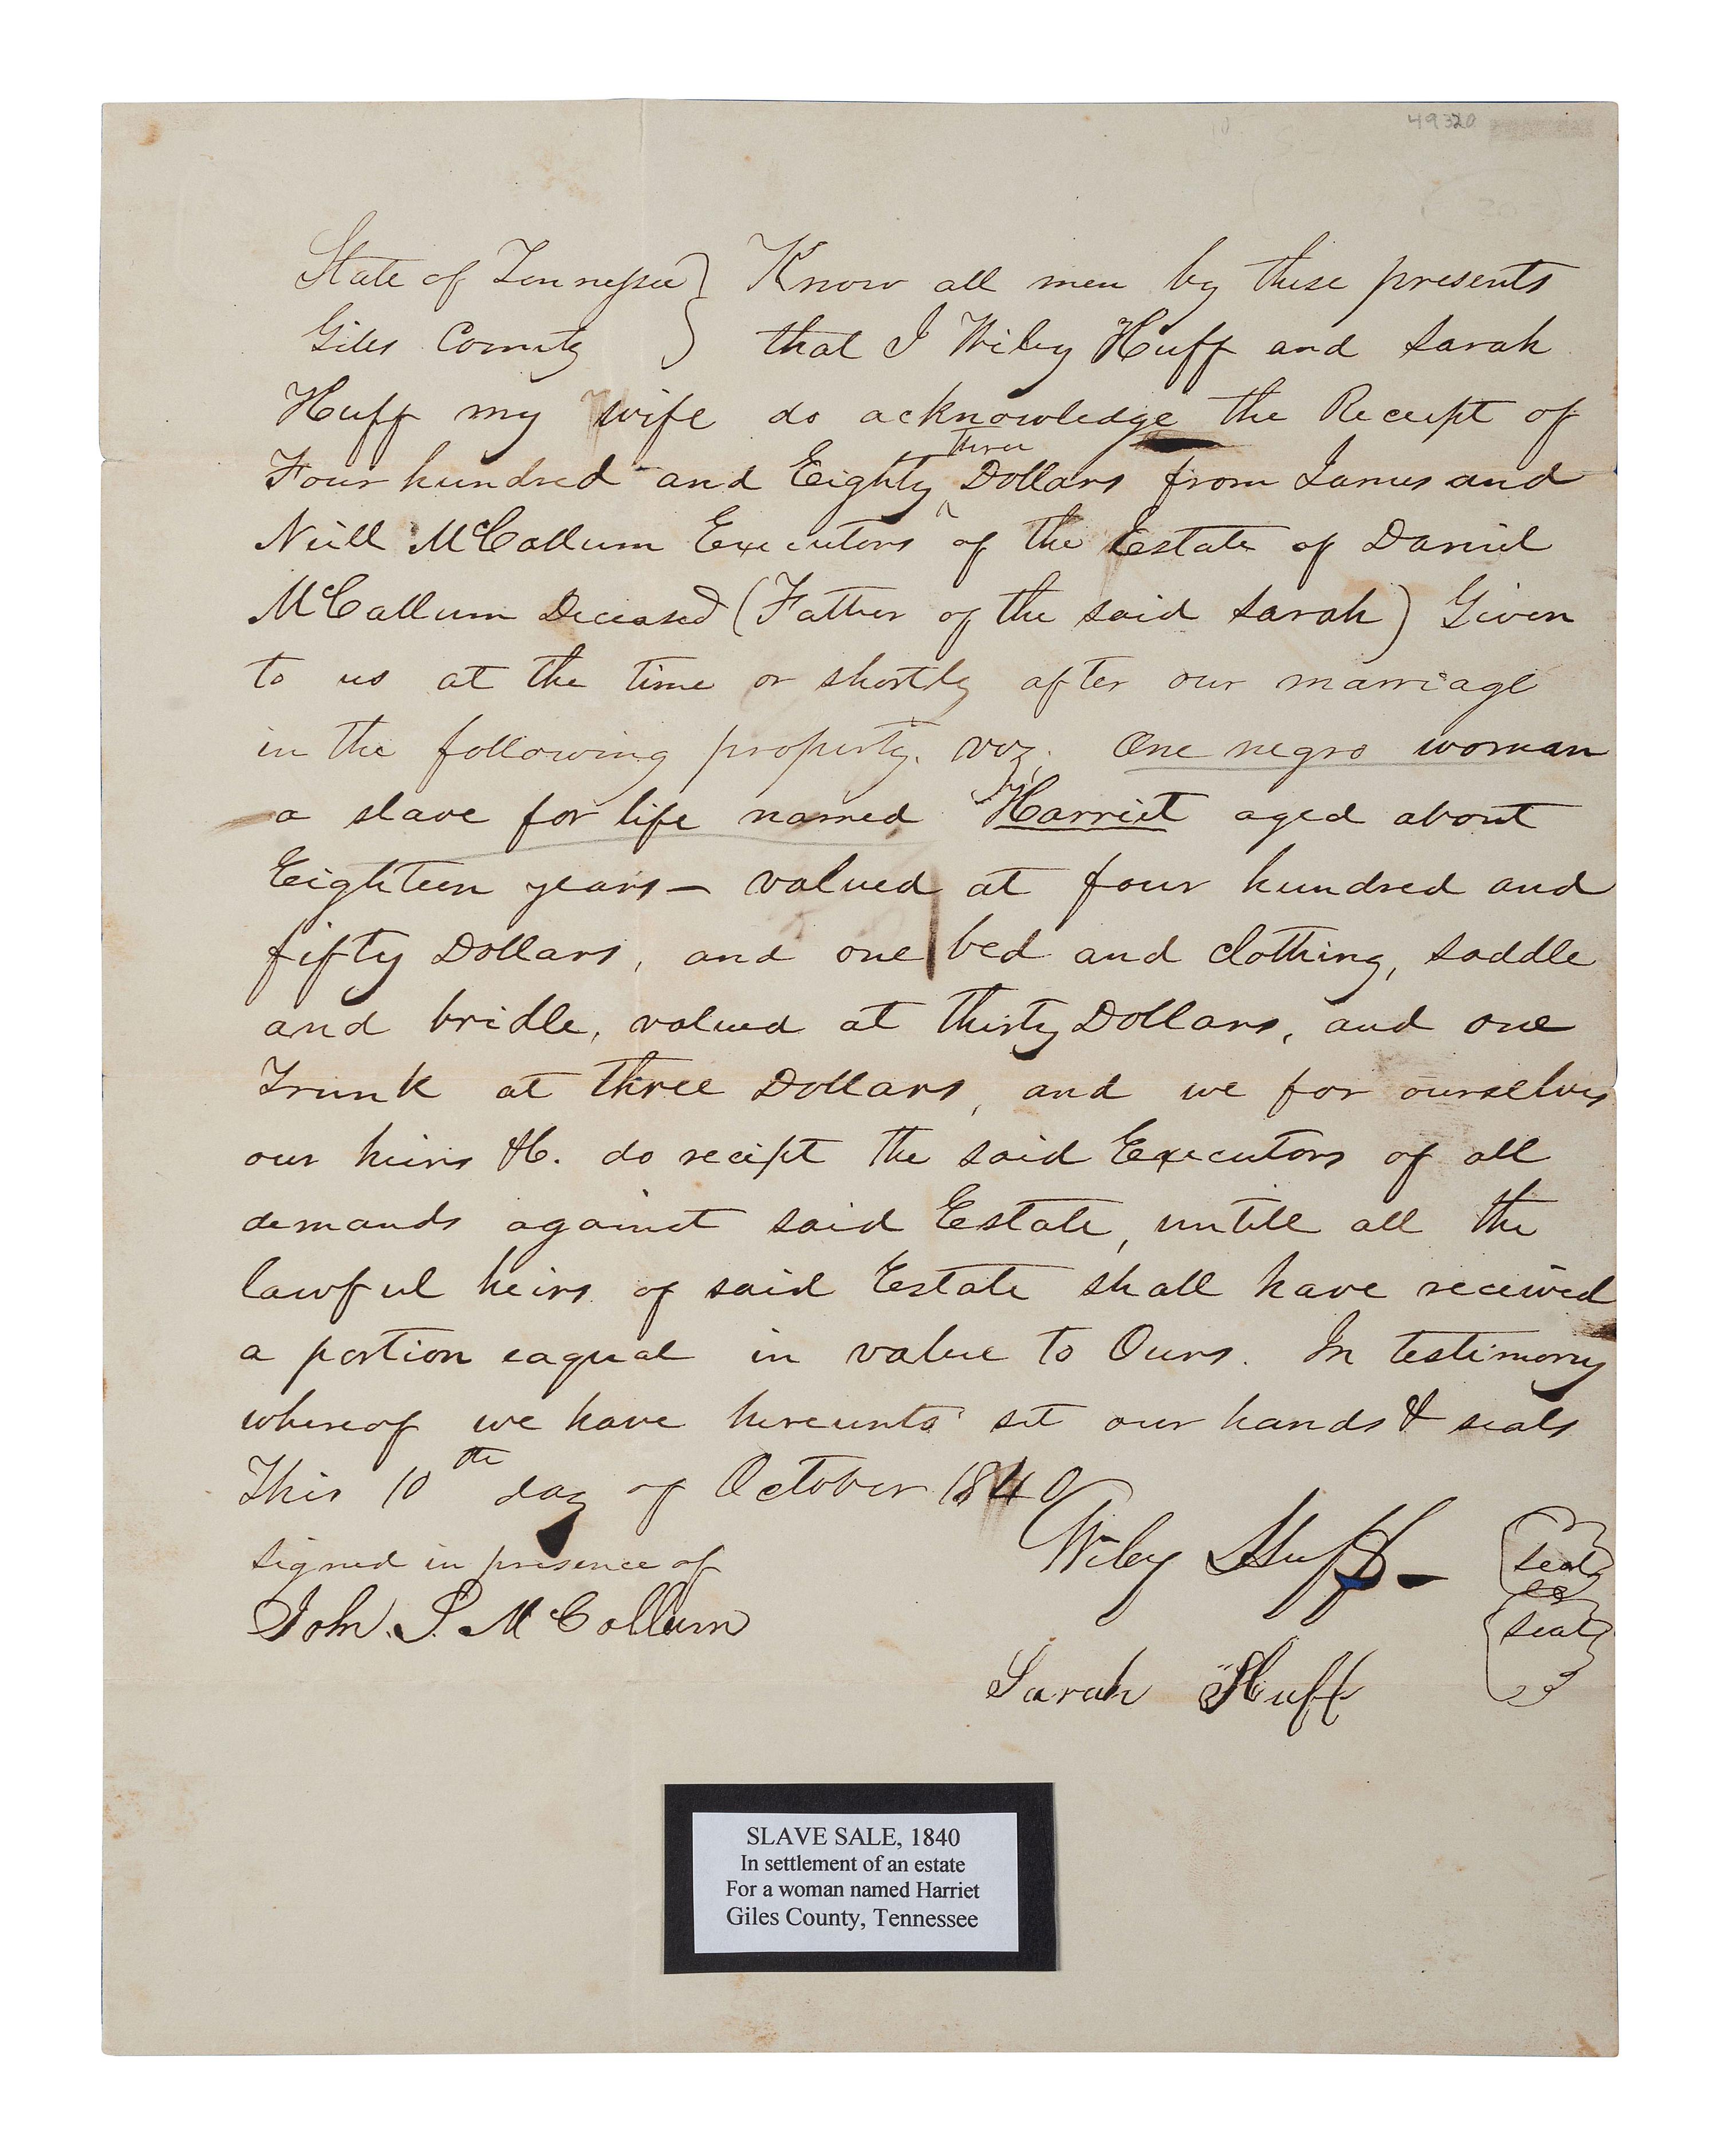 49320
State of Tennessee } Know all men by these presents
Giles County } that I Wiley Huff and Sarah
Huff my wife do acknowledge the Receipt of
Four hundred and Eighty ^three Dollars from James and
Neill McCallum Executors of the Estate of Daniel
McCallum Deceased (Father of the said Sarah) Given
to us at the time or shortly after our marriage
in the following property. viz. One negro woman
a slave for life named Harriet aged about
Eighteen years — valued at four hundred and
fifty Dollars, and one bed and clothing, saddle
and bridle, valued at thirty Dollars, and one
Trunk at three Dollars, and we for ourselves
our heirs &c. do receipt the said Executors of all
demands against said Estate, untill all the
lawful heirs of said Estate shall have received
a portion eaqual in value to Ours. In testimony
whereof we have hereunto set our hands & seals
This 10th day of October 1840
Wiley Huff seal
signed in presence of
John. S. McCollum
Sarah Huff seal
SLAVE SALE, 1840
In settlement of an estate
For a woman named Harriet
Giles County, Tennessee